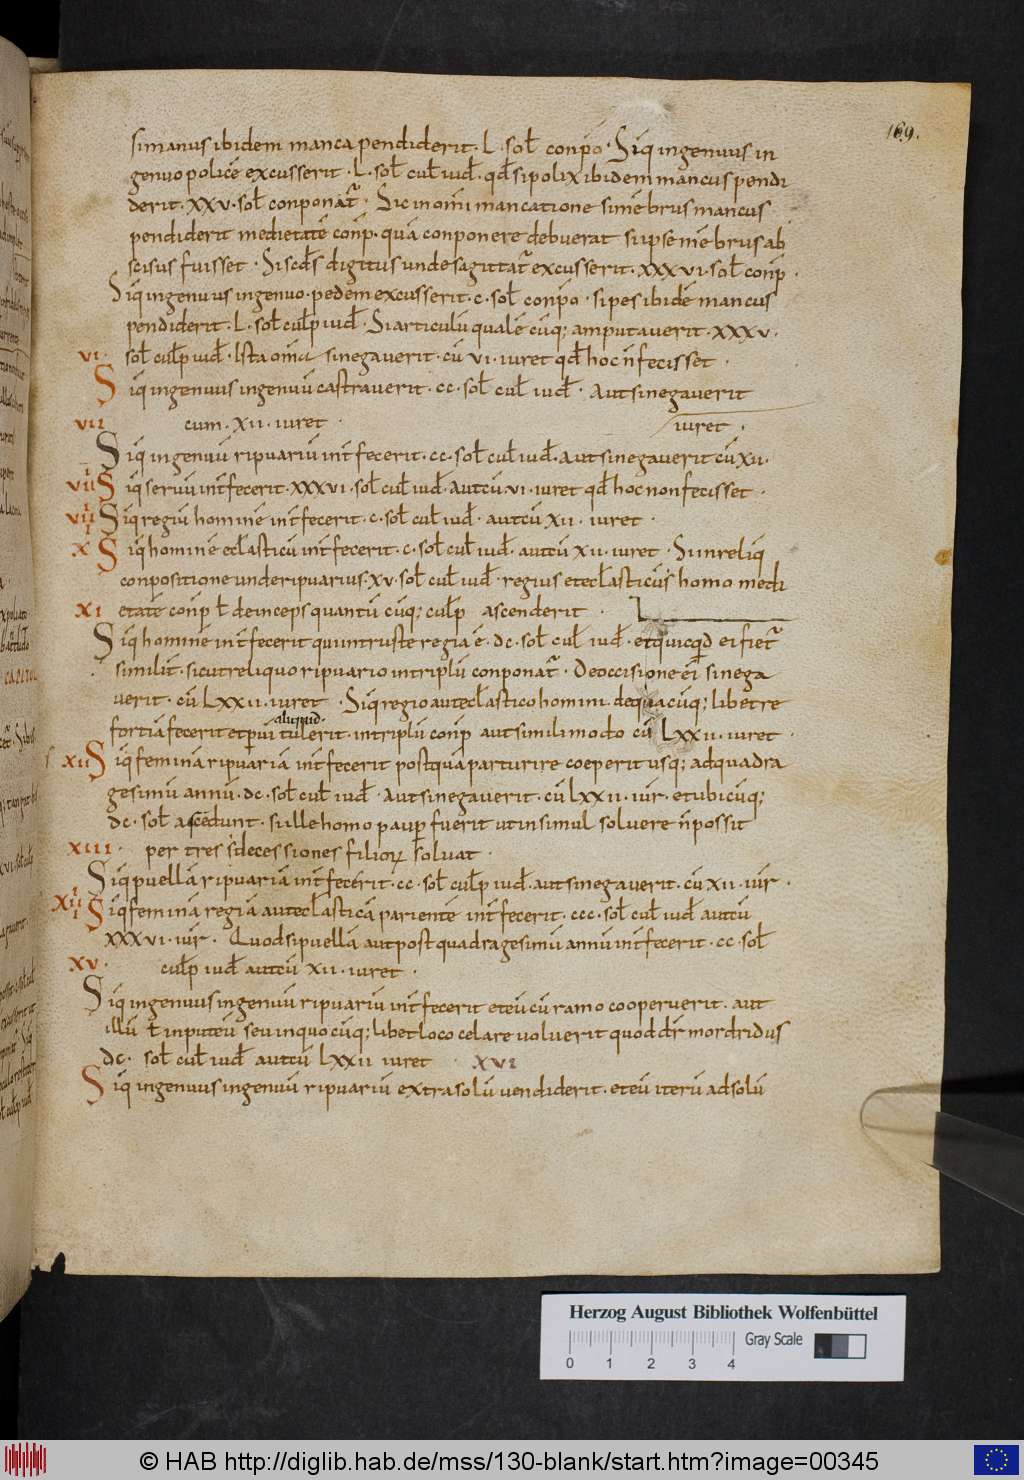 169.
si manus ibidem manca pendiderit · L · sol̄ conp̄o · Siq̄ ingenuus in
genuo policē excusserit · L · sol̄ cul̄ iud̄ · qd̄ si polix ibidem mancus pendi
derit · XXV · sol̄ conponat̄ · Sic in om̄i mancatione si mēbrus mancus
pendiderit medietatē conp̄ · quā conponere debuerat si ipse mēbrus ab
scisus fuisset · Si scd̄s digitus unde sagittat̄ excusserit · XXXVI · sol̄ conp̄ ·
Siq̄ ingenuus ingenuo · pedem excusserit · c · sol̄ conp̄o · si pes ibidē mancus
pendiderit · L · sol̄ culp̄ iud̄ · Si articulū qualē cūq; amputauerit · XXXV ·
VI · sol̄ culp̄ iud̄ · Ista om̄ia si negauerit · cū VI · iuret qd̄ hoc n̄ fecisset ·
Siq̄ ingenuus ingenuū castrauerit · cc · sol̄ cul̄ iud̄ · Aut si negauerit
VII cum · XII · iuret · iuret ·
Siq̄ ingenuū ripuariū int̄fecerit · cc · sol̄ cul̄ iud̄ · Aut si negauerit cū XII ·
VIII Siq̄ seruū int̄fecerit · XXXVI · sol̄ cul̄ iud̄ · Aut cū VI · iuret qd̄ hoc non fecisset ·
VIIII Siq̄ regiū hominē int̄fecerit · c · sol̄ cul̄ iud̄ · aut cū XII · iuret ·
X Siq̄ hominē ecl̄asticū int̄fecerit · c · sol̄ cul̄ iud̄ · aut cū XII · iuret · Si in reliq̄
conpositione unde ripuarius · XV · sol̄ cul̄ iud̄ · regius et ecl̄asticus homo medi
XI etatē conp̄ l̄ deinceps quantū cūq; culp̄ ascenderit ·
Siq̄ hominē int̄fecerit qui in truste regia ē · dc · sol̄ cul̄ iud̄ · et quicq̄d ei fiet̄
similit̄ · sicut reliquo ripuario in triplū conponat̄ · De occisione ei si nega
uerit · cū LXXII · iuret · Siq̄ regio aut ecl̄astico homini · de quacūq; libet re
fortiā fecerit et p̄ uī aliquid tulerit · in triplū conp̄ aut simili modo cū LXXII · iuret ·
XII Siq̄ feminā ripuariā int̄fecerit postquā parturire coeperit usq; ad quadra
gesimū annū · dc · sol̄ cul̄ iud̄ · Aut si negauerit · cū LXXII · iur̄ · et ubicūq;
dc · sol̄ ascedunt · si ille homo paup̄ fuerit ut insimul soluere n̄ possit
XIII · per tres decessiones filiorū soluat ·
Siq̄ puellā ripuariā int̄fecerit · cc · sol̄ culp̄ iud̄ · aut si negauerit · cū XII · iur̄ ·
XIIII Siq̄ feminā regiā aut ecl̄asticā parientē int̄fecerit · ccc · sol̄ cul̄ iud̄ aut cū
XXXVI · iur̄ · Quod si puellā aut post quadragesimū annū int̄fecerit · cc · sol̄
XV · culp̄ iud̄ aut cū XII · iuret ·
Siq̄ ingenuus ingenuū ripuariū int̄fecerit et eū cū ramo cooperuerit · aut
illū l̄ in puteū seu in quocūq; libet loco celare uoluerit quod dr̄ mordridus
dc · sol̄ cul̄ iud̄ aut cū LXXII iuret · XVI
Siq̄ ingenuus ingenuū ripuariū extra solū uendiderit · et eū iterū ad solū
Herzog August Bibliothek Wolfenbüttel
Gray Scale
0 1 2 3 4
© HAB http://diglib.hab.de/mss/130-blank/start.htm?image=00345